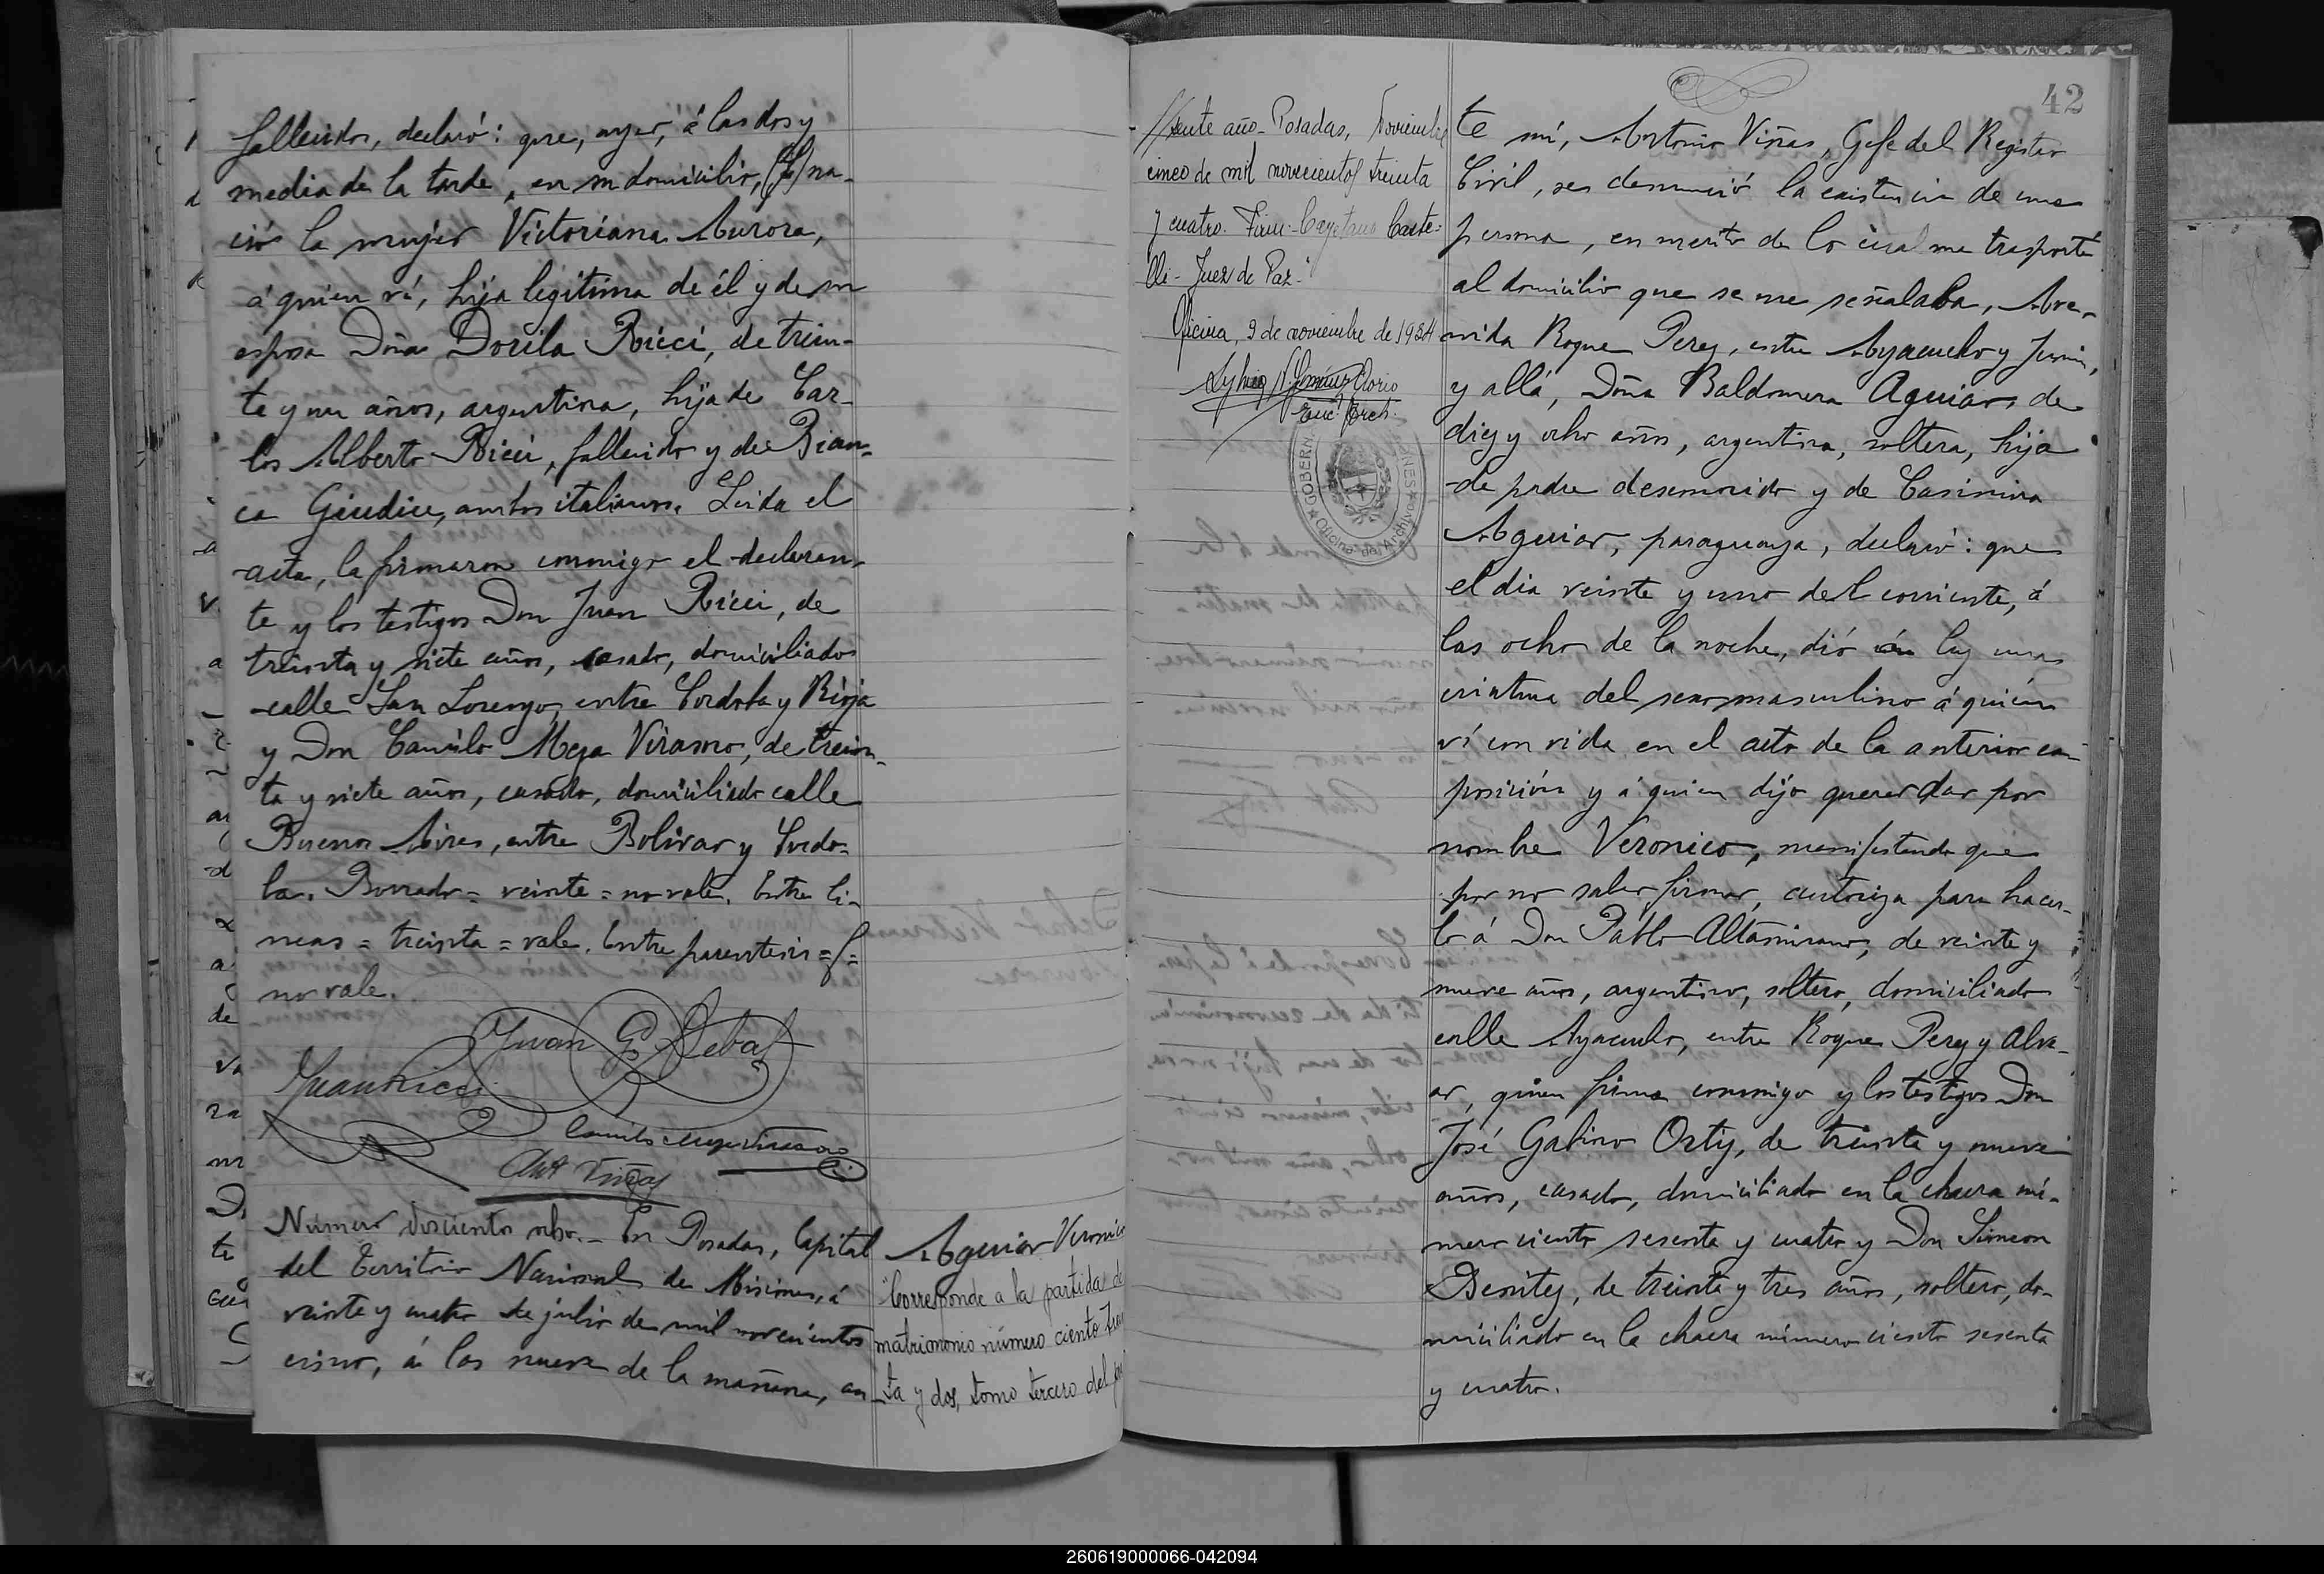 fallecidos, declaró: que, ayer, á las dos y
media de la tarde, en su domicilio, (f) na-
ció la mujer Victoriana Aurora,
á quien ví, hija legitima de él y de su
esposa Doña Dorila Ricci, de trein-
ta y un años, argentina, hija de Car-
los Alberto Ricci, fallecido y de Bian-
ca Giudice, ambos italianos. Leida el
acta, la firmaron conmigo el declaran-
te y los testigos Don Juan Ricci, de
treinta y siete años, casado, domiciliado
calle San Lorenzo, entre Cordoba y Rioja
y Don Camilo Meza Virasoro, de trein-
ta y siete años, casado, domiciliado calle
Buenos Aires, entre Bolivar y Cordo-
ba. Borrado = veinte = no vale. Entre li-
neas = treinta = vale. Entre parentesis = f =
no vale.
Juan G. Debat
Juan Ricci
Camilo Meza Virasoro
Ant Viñas
Número doscientos ocho. - En Posadas, Capital
del Territorio Nacional de Misiones, á
veinte y cuatro de julio de mil novecientos
cinco, á las nueve de la mañana, an-
Aguiar Veronico
"Corresponde a la partida de
matrimonio número ciento trein
ta y dos, tomo tercero del pre
//sente año- Posadas, Noviembre
cinco de mil novecientos treinta
y cuatro. Firm:- Cayetano Caste-
lli- Juez de Paz-"
Oficina, 9 de noviembre de 1934
Enc. Arch.
GOBERN
NES
Oficina de Archivo
42
te mí, Antonio Viñas, Gefe del Registro
Civil, se denunció la existencia de una
persona, en merito de lo cual me trasporté
al domicilio que se me señalaba, Ave-
nida Roque Perez, entre Ayacucho y Junin,
y allá, Doña Baldomera Aguiar, de
diez y ocho años, argentina, soltera, hija
de padre desconocido y de Casimira
Aguiar, paraguaya, declaró: que
el dia veinte y uno del corriente, á
las ocho de la noche, dió á luz una
criatura del sexo masculino á quien
ví con vida en el acto de la anterior ex-
posición y á quien dijo querer dar por
nombre Veronico, manifestando que
por no saber firmar, autoriza para hacer-
lo á Don Pablo Altamirano, de veinte y
nueve años, argentino, soltero, domiciliado
calle Ayacucho, entre Roque Perez y Alve-
ar, quien firma conmigo y los testigos Don
José Gabino Ortiz, de treinta y nueve
años, casado, domiciliado en la chacra nú-
mero ciento sesenta y cuatro y Don Simeon
Benitez, de treinta y tres años, soltero, do-
miciliado en la chacra número ciento sesenta
y cuatro.
260619000066-042094